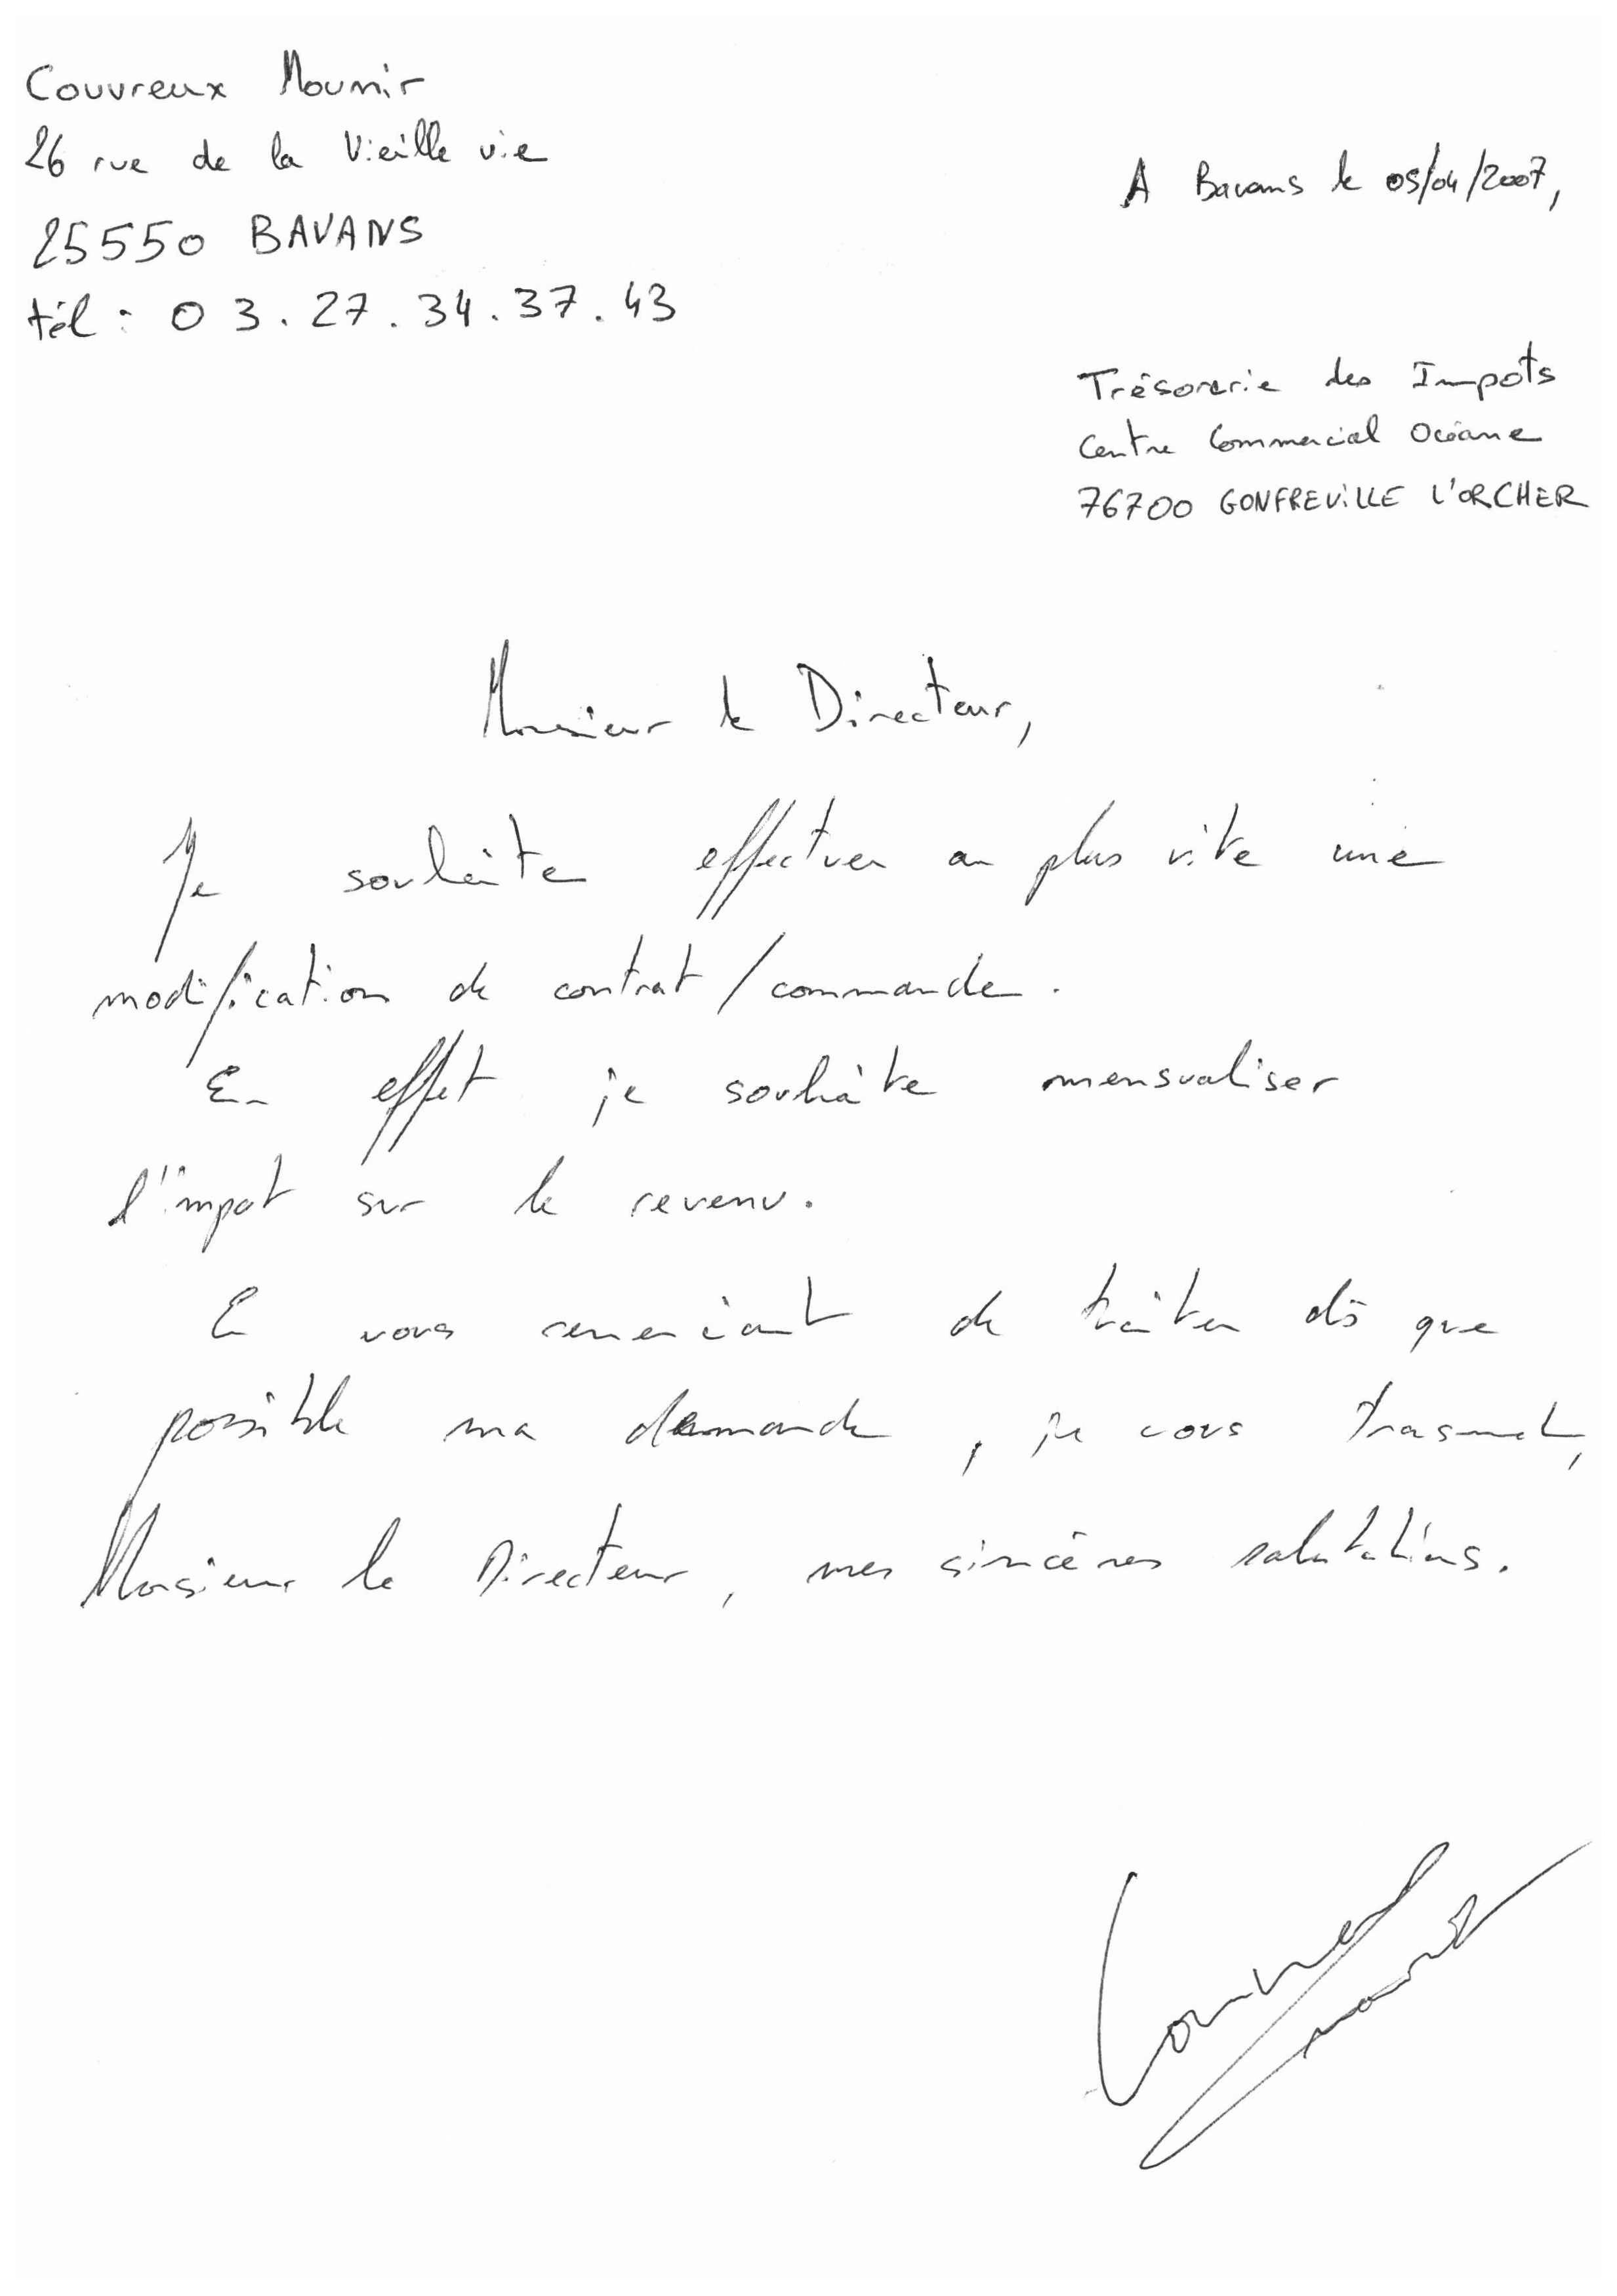 Couvreux Mounir
26 rue de la Vieille vie
25550 BAVANS
tél : 03.27.34.37.43
A Bavans le 05/04/2007,
Trésorerie des Impôts
Centre Commercial Océane
76700 GONFREVILLE L'ORCHER
Monsieur le Directeur,
Je souhaite effectuer au plus vite une
modification de contrat / commande.
En effet je souhaite mensualiser
l'impot sur le revenu.
En vous remerciant de traiter dès que
possible ma demande, je vous trasmet,
Monsieur le Directeur, mes sincères salutations.